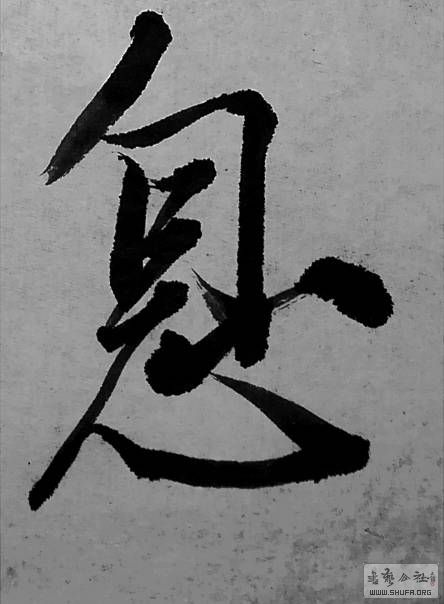 息
書藝公社
WWW.SHUFA.ORG